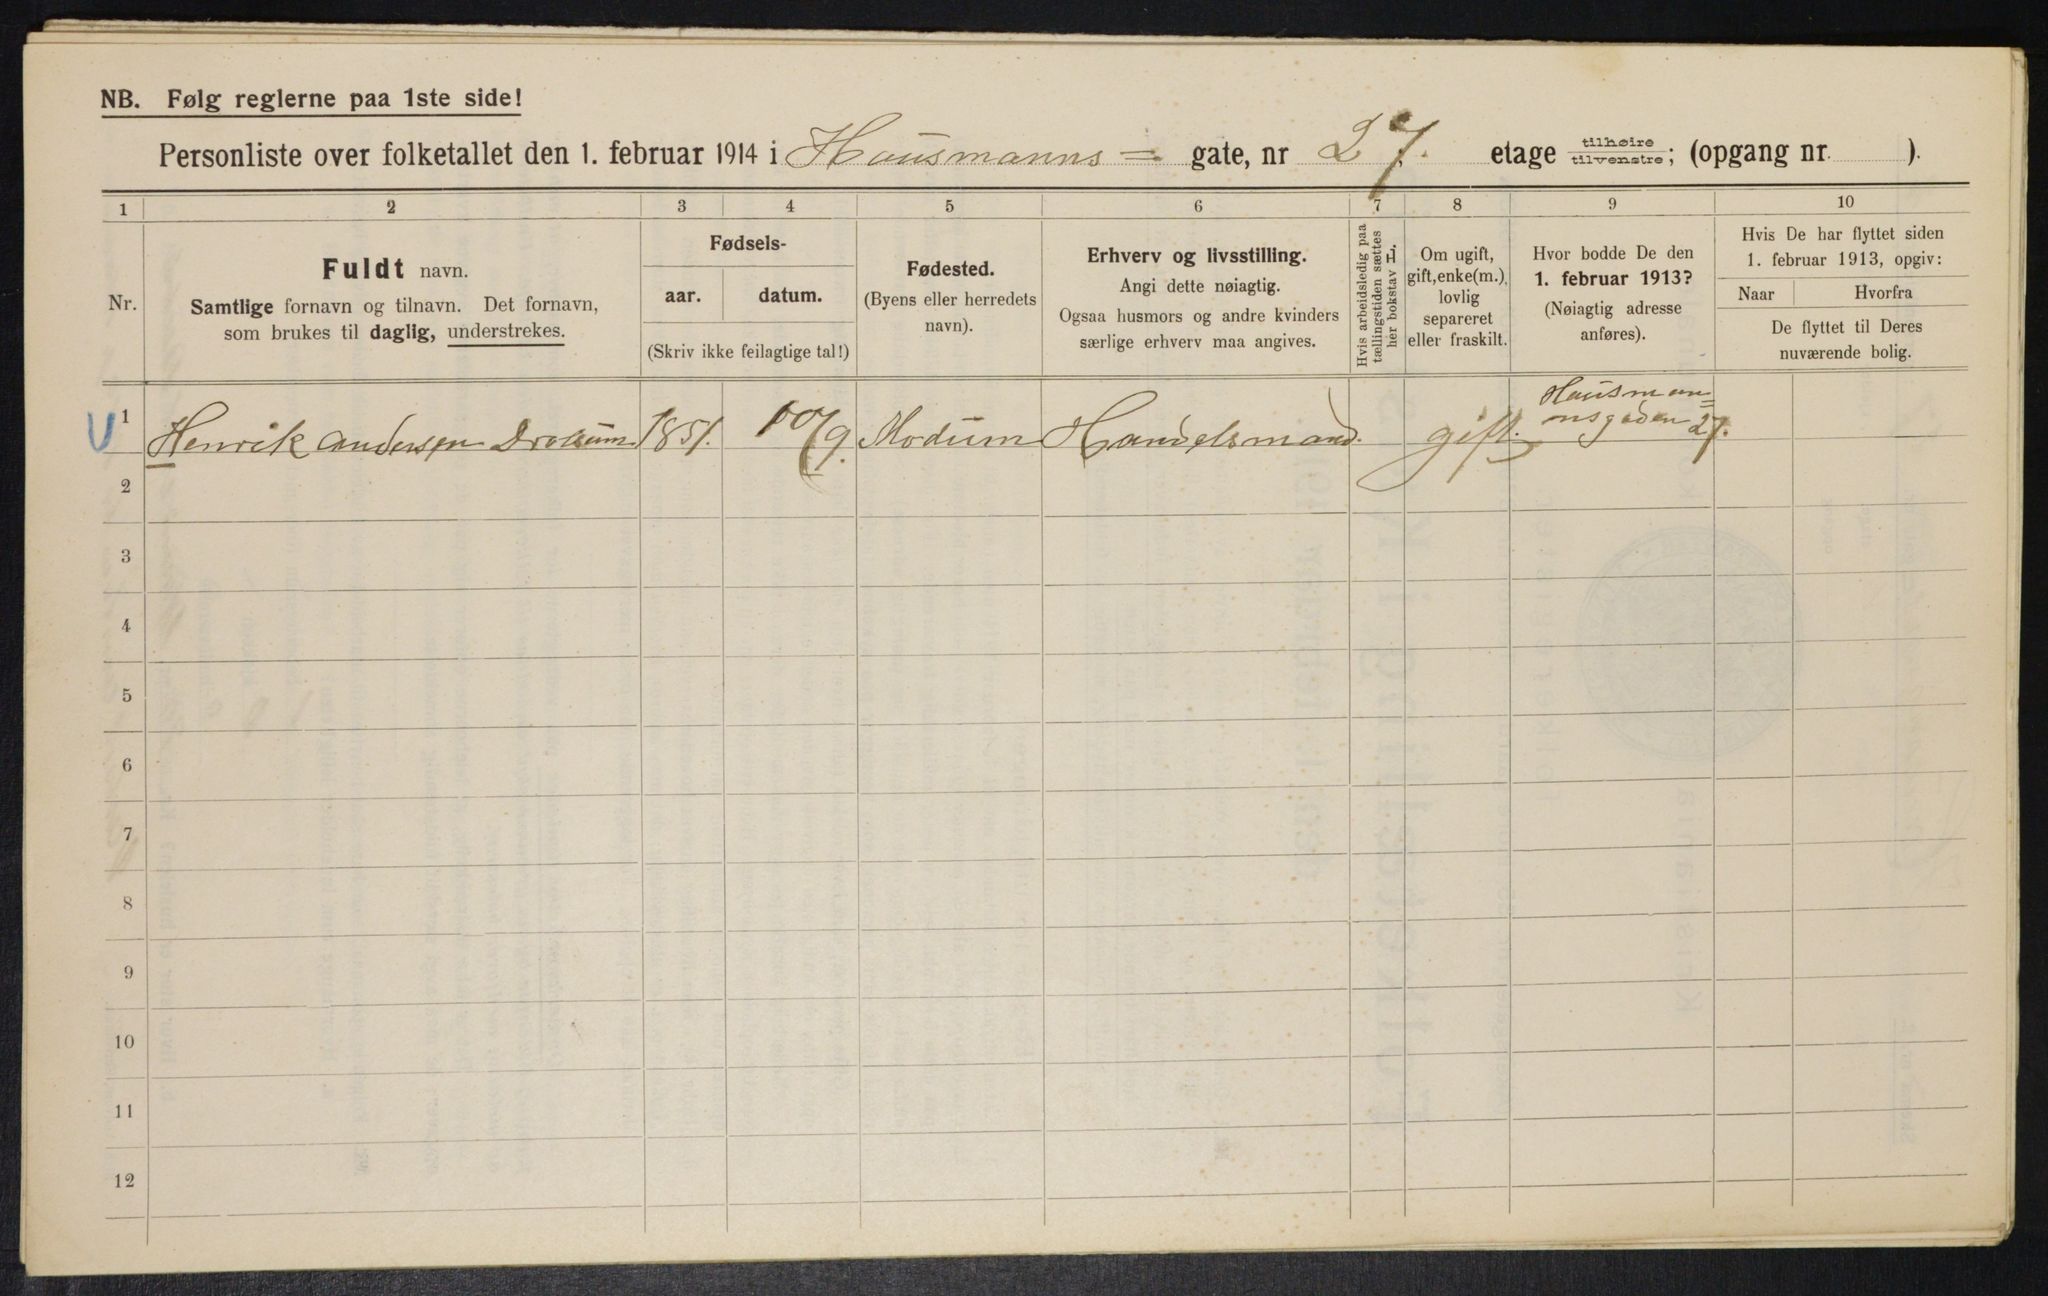 NB. Følg reglerne paa 1ste side!
Personliste over folketallet den 1. februar 1914 i Hausmanns= gate, nr 27. etage tilhøire tilvenstre; (opgang nr. ).
1 2 3 4 5 6 7 8 9 10
Nr.
Fuldt navn.
Samtlige fornavn og tilnavn. Det fornavn,
som brukes til daglig, understrekes.
Fødsels-
aar. datum.
(Skriv ikke feilagtige tal!)
Fødested.
(Byens eller herredets
navn).
Erhverv og livsstilling.
Angi dette nøiagtig.
Ogsaa husmors og andre kvinders
særlige erhverv maa angives.
Hvis arbeidsledig paa
tællingstiden sættes
her bokstav L.
Om ugift,
gift, enke(m.),
lovlig
separeret
eller fraskilt.
Hvor bodde De den
1. februar 1913?
(Nøiagtig adresse
anføres).
Hvis De har flyttet siden
1. februar 1913, opgiv:
Naar Hvorfra
De flyttet til Deres
nuværende bolig.
Hausman=
nsgaden 27.
1 Henrik Andersen Drolsum 1851. 10/9. Modum Handelsmand. gift.
2
3
4
5
6
7
8
9
10
11
12